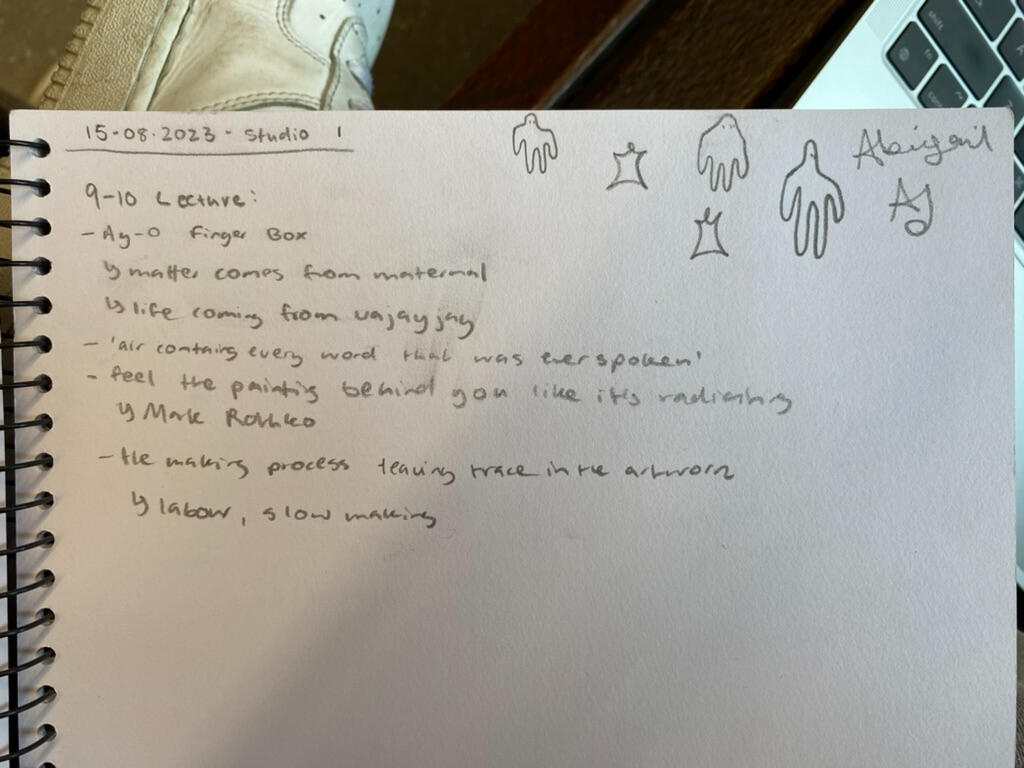 15-08.2023 - Studio 1
Abigail
AJ
9-10 Lecture:
- Ay-O Finger Box
↳ matter comes from maternal
↳ life coming from vajayjay
- 'air contains every word that was ever spoken'
- feel the painting behind you like it's radiating
↳ Mark Rothko
- the making process leaving trace in the artwork
↳ labour, slow making
shift
fn
control